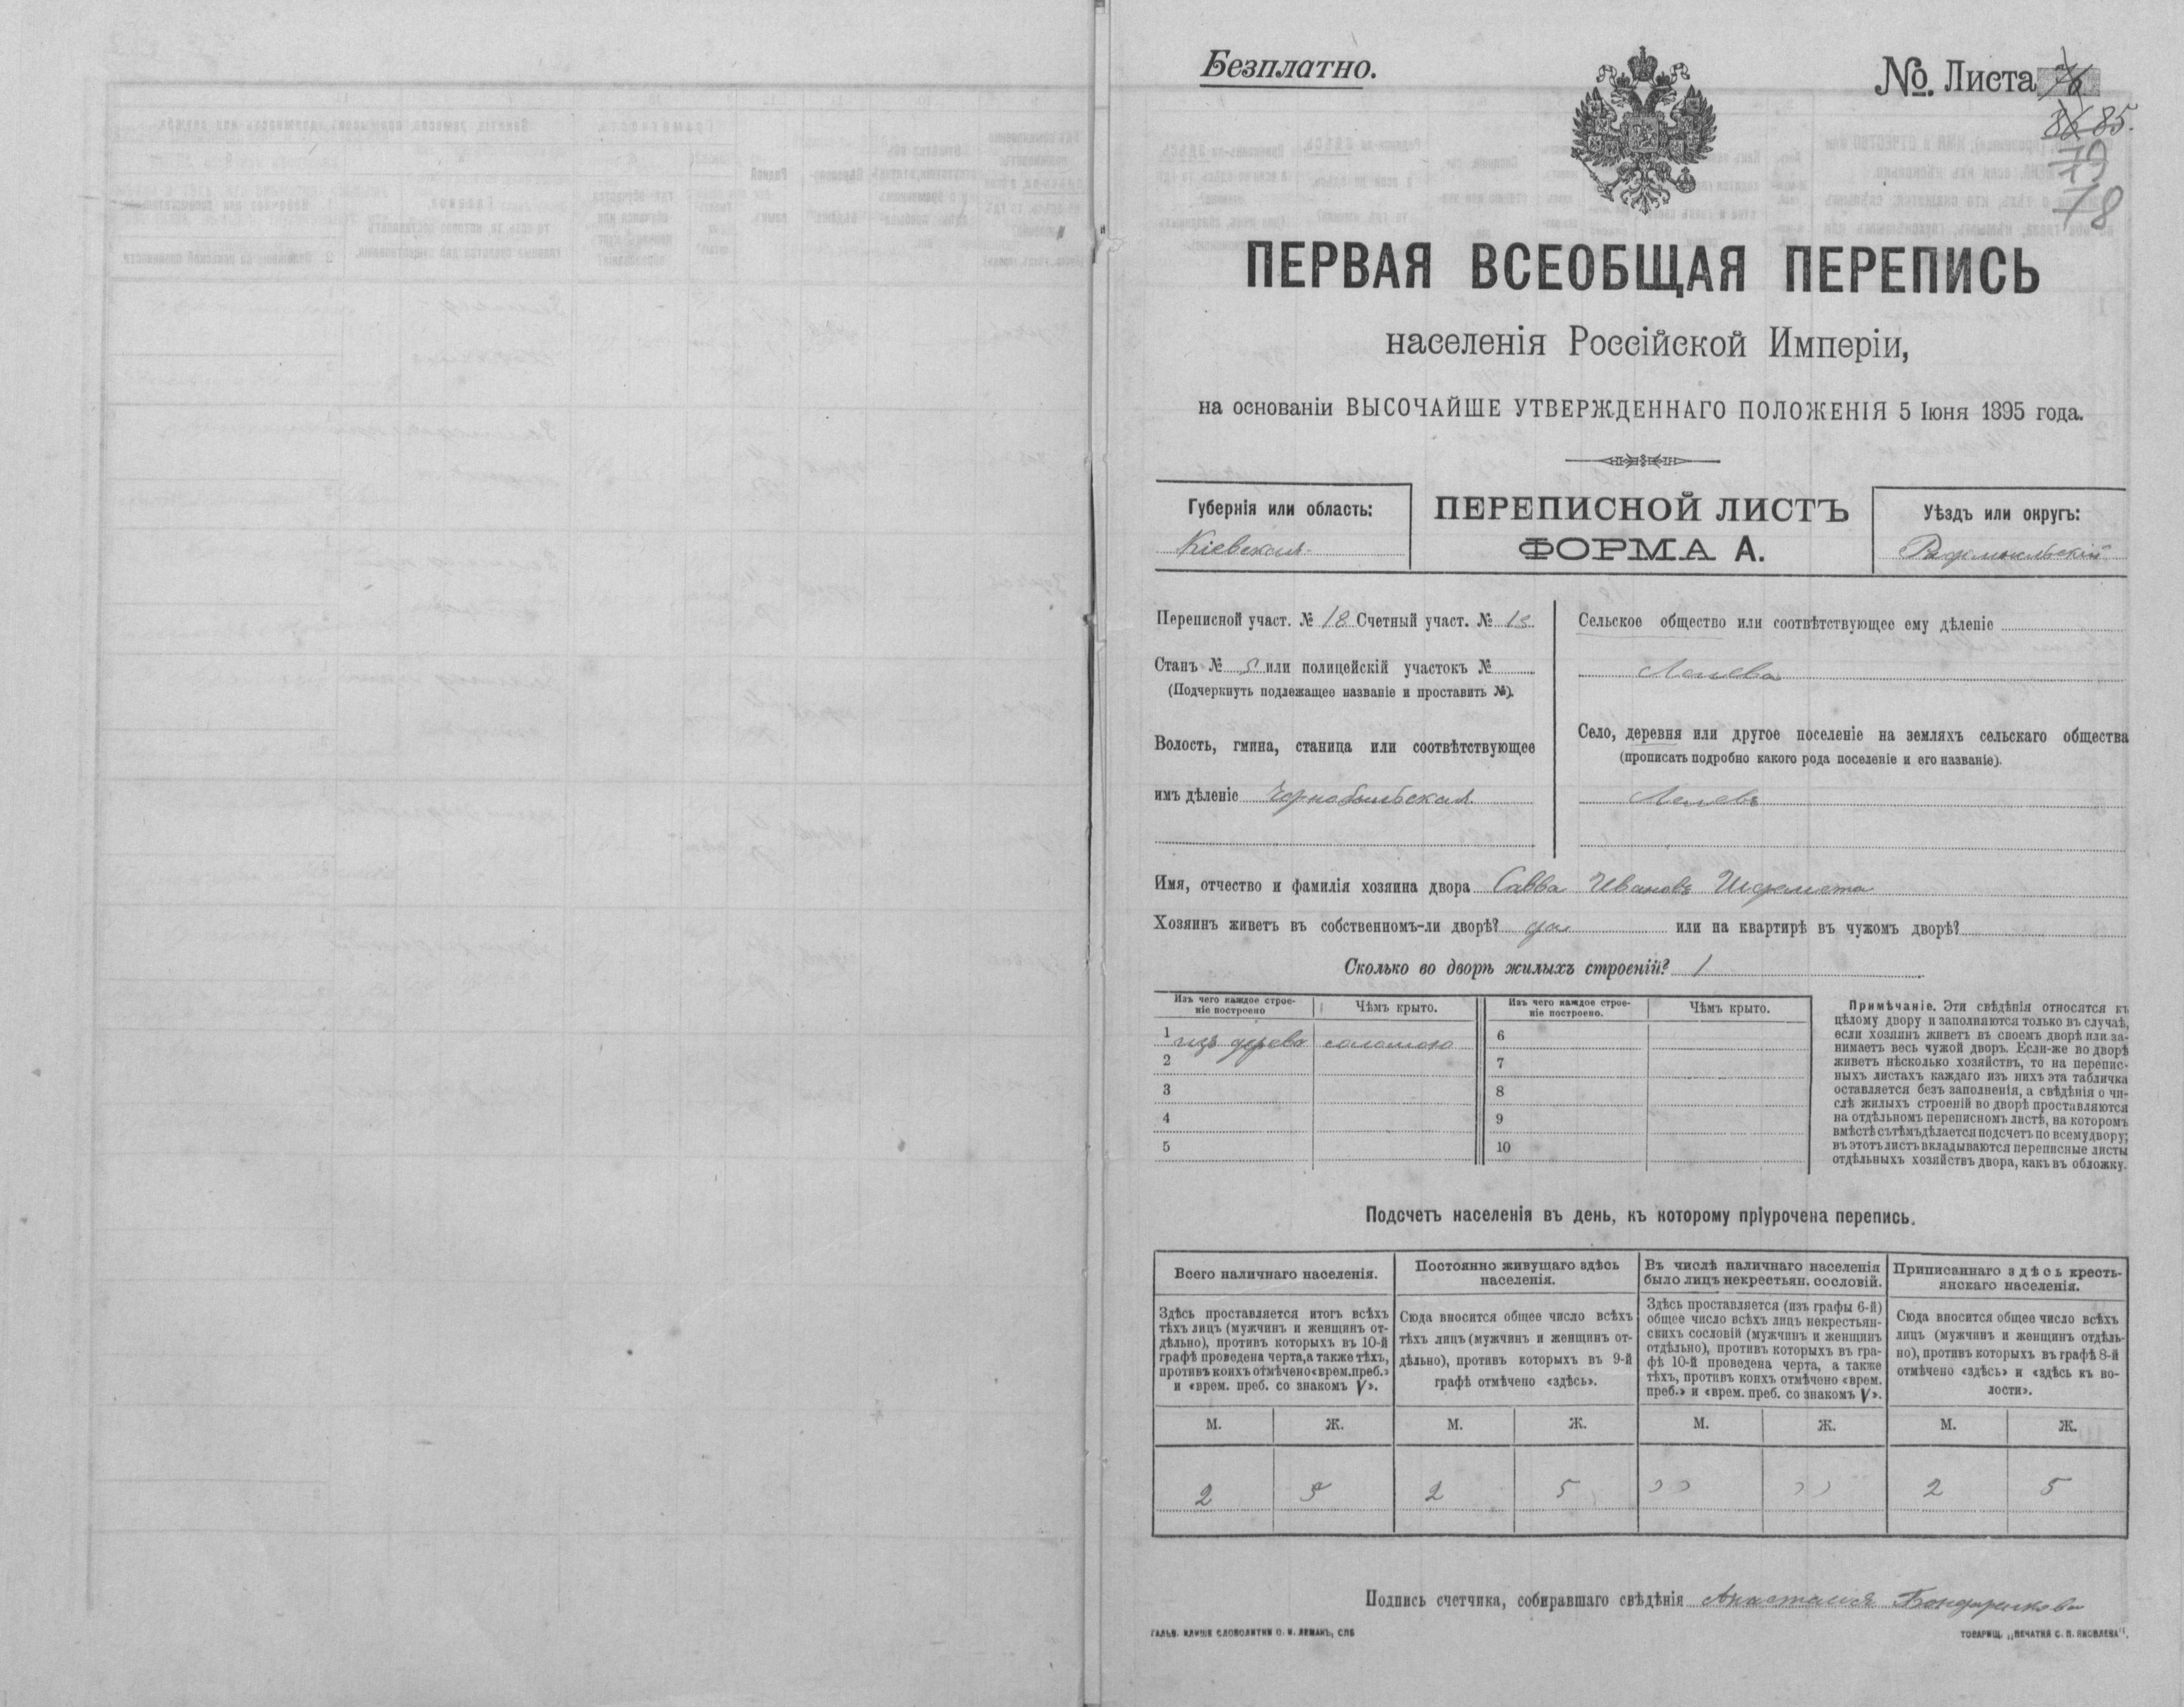 Безплатно.
№. Листа 76
86 85.
79
78
ПЕРВАЯ ВСЕОБЩАЯ ПЕРЕПИСЬ
населенія Россійской Имперіи,
на основаніи ВЫСОЧАЙШЕ УТВЕРЖДЕННАГО ПОЛОЖЕНІЯ 5 Іюня 1895 года.
Губернія или область:
Кіевская
ПЕРЕПИСНОЙ ЛИСТЪ
ФОРМА А.
Уѣздъ или округъ:
Радомысльскій
Переписной участ. № 18 Счетный участ. № 13
Станъ № 5 или полицейскій участокъ №
(Подчеркнуть подлежащее названіе и проставить №).
Волость, гмина, станица или соотвѣтствующее
имъ дѣленіе Чернобыльская
Сельское общество или соотвѣтствующее ему дѣленіе
Лелевъ
Село, деревня или другое поселеніе на земляхъ сельскаго общества
(прописать подробно какого рода поселеніе и его названіе).
Лелевъ
Имя, отчество и фамилія хозяина двора Савва Ивановъ
Хозяинъ живетъ въ собственномъ-ли дворѣ? или на квартирѣ въ чужомъ дворѣ?
Сколько во дворѣ жилыхъ строеній? 1
Изъ чего каждое строе-
ніе построено
Чѣмъ крыто.
Изъ чего каждое строе-
ніе построено.
Чѣмъ крыто.
1 изъ дерева соломою
2
3
4
5
6
7
8
9
10
Примѣчаніе. Эти свѣдѣнія относятся къ
цѣлому двору и заполняются только въ случаѣ,
если хозяинъ живетъ въ своемъ дворѣ или за-
нимаетъ весь чужой дворъ. Если-же во дворѣ
живетъ нѣсколько хозяйствъ, то на перепис-
ныхъ листахъ каждаго изъ нихъ эта табличка
оставляется безъ заполненія, а свѣдѣнія о чи-
слѣ жилыхъ строеній во дворѣ проставляются
на отдѣльномъ переписномъ листѣ, на которомъ
вмѣстѣ съ тѣмъ дѣлается подсчетъ по всему двору;
въ этотъ листъ вкладываются переписные листы
отдѣльныхъ хозяйствъ двора, какъ въ обложку.
Подсчетъ населенія въ день, къ которому пріурочена перепись.
Всего наличнаго населенія.
Постоянно живущаго здѣсь
населенія.
Въ числѣ наличнаго населенія
было лицъ некрестьян. сословій.
Приписаннаго здѣсь кресть-
янскаго населенія.
Здѣсь проставляется итогъ всѣхъ
тѣхъ лицъ (мужчинъ и женщинъ от-
дѣльно), противъ которыхъ въ 10-й
графѣ проведена черта, а также тѣхъ,
противъ коихъ отмѣчено «врем. преб.»
и «врем. преб. со знакомъ V».
Сюда вносится общее число всѣхъ
тѣхъ лицъ (мужчинъ и женщинъ от-
дѣльно), противъ которыхъ въ 9-й
графѣ отмѣчено «здѣсь».
Здѣсь проставляется (изъ графы 6-й)
общее число всѣхъ лицъ некрестьян-
скихъ сословій (мужчинъ и женщинъ
отдѣльно), противъ которыхъ въ гра-
фѣ 10-й проведена черта, а также
тѣхъ, противъ коихъ отмѣчено «врем.
преб.» и «врем. преб. со знакомъ V».
Сюда вносится общее число всѣхъ
лицъ (мужчинъ и женщинъ отдѣль-
но), противъ которыхъ въ графѣ 8-й
отмѣчено «здѣсь» и «здѣсь къ во-
лости».
М. Ж. М. Ж. М. Ж. М. Ж.
2 5 2 5 " " 2 5
Подпись счетчика, собиравшаго свѣдѣнія Анастасія Бондаренкова
ГАЛЬВ. КЛИШЕ СЛОВОЛИТНИ О. И. ЛЕМАНЪ, СПБ
ТОВАРИЩ. „ПЕЧАТНЯ С. П. ЯКОВЛЕВА".